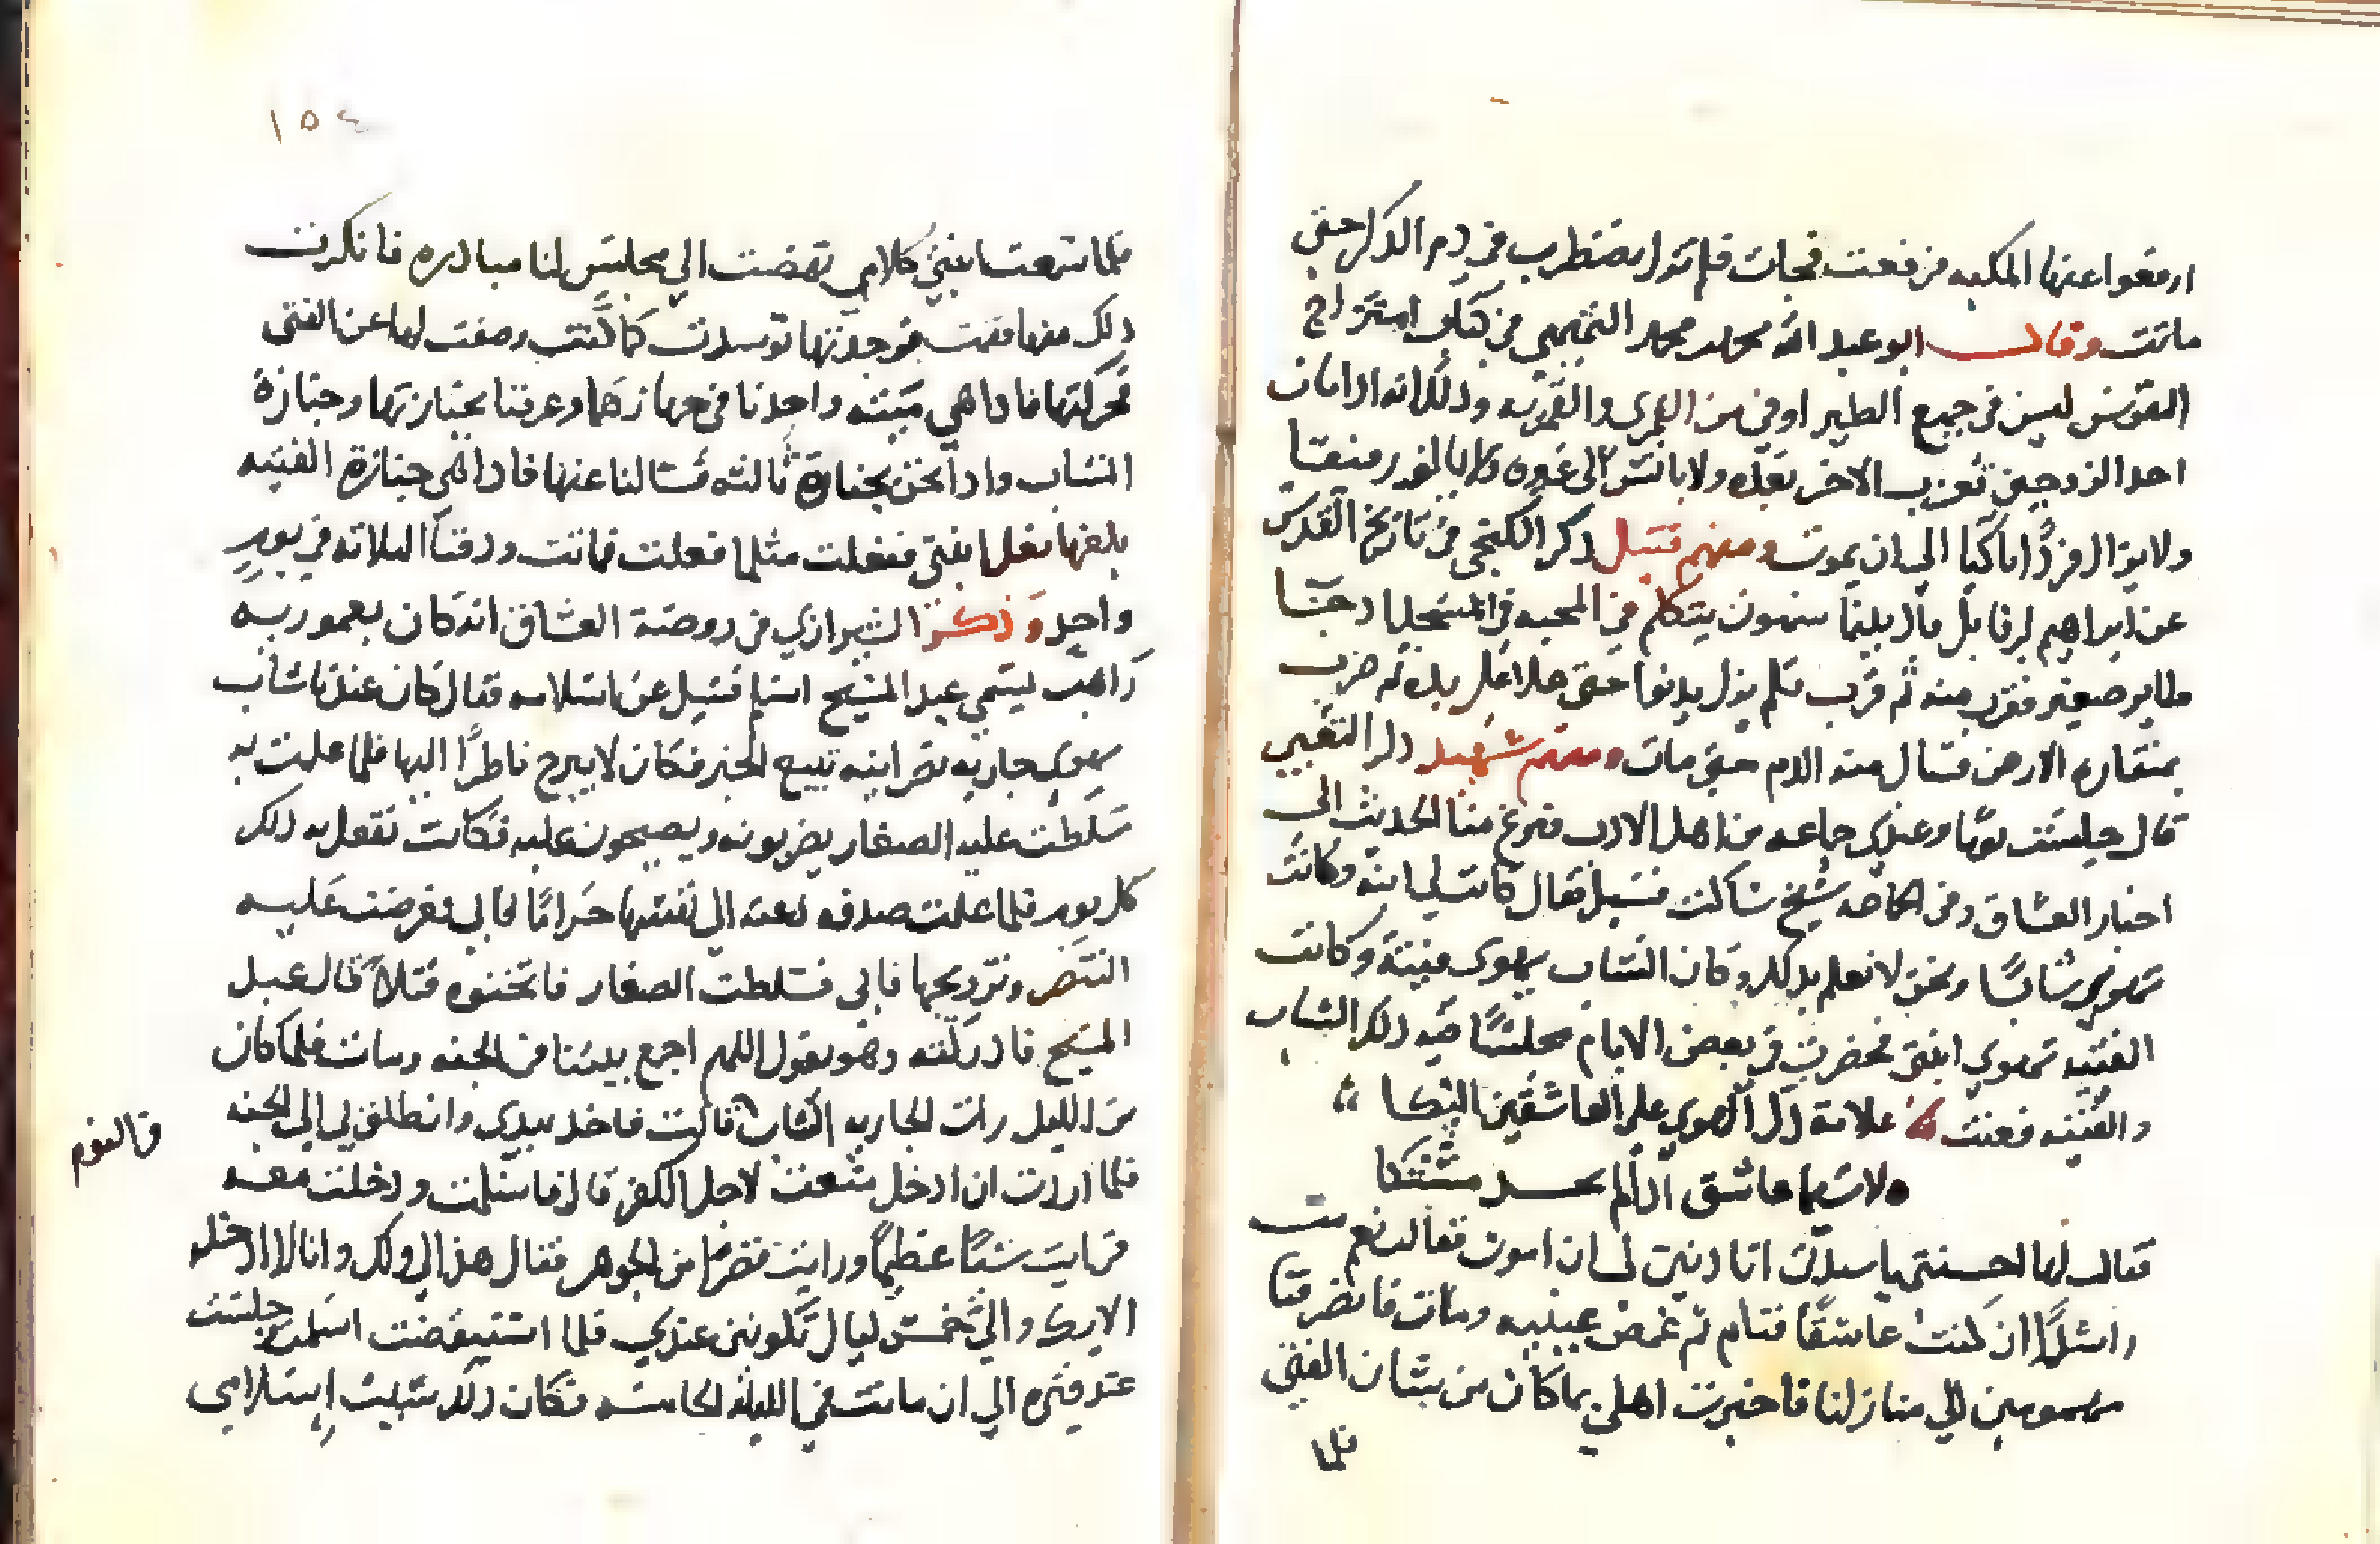 ارفعوا عنها المكبه فرفعت فجات فلم تزل تضطرب في دم الذكر حتى
ماتت وقال ابو عبد الله محمد بن محمد التميمي في كتاب امتزاج
النفوس ليس في جميع الطير اوفي من القمري والقمريه وذلك انه اذا مات
احد الزوجين تعزب الاخر بعده ولا يانس الى غيره
ولا يزال فردا باكيا الى ان يموت ومنهم قتيل ذكر الكنجي في تاريخ القدس
عن ابراهيم بن فاتك قال بينما سمنون يتكلم في المحبه في المسجد اذ جا
طاير صغير فقرب منه ثم قرب فلم يزل يدنوا حتى علا على يده ثم ضرب
بمنقاره الارض فسال منه الدم حتى مات ومنهم شهيد ذكر
قال جلست يوما وعندي جماعه من اهل الادب فنزع منا الحديث الى
اخبار العشاق وفي الجماعه شيخ ساكت فسيل فقال كانت لي ابنة وكانت
تهوي شابا ونحن لا نعلم بذلك وكان الشاب يهوى قينة وكانت
القينه تهوي ابنتي فحضرت في بعض الايام مجلسا فيه ذلك الشاب
والقينه فغنت علامة ذل الهوي على العاشقين البكا
ولا سيما عاشق اذا لم يجد مشتكا
فقال لها احسنتي يا سيدتي اتاذنين لي ان اموت فقالت نعم مت
راشدا ان كنت عاشقا فنام ثم غمض عينيه ومات فانصرفنا
مهمومين الي منازلنا فاخبرت اهلي بما كان من شان الفتى
فلما
١٥٤
فلما سمعت ابنتي كلامي نهضت الي مجلس لنا مبادره فانكرت
ذلك منها فقمت فوجدتها توسدت كما كنت وصفت لها عن الفتى
فحركتها فاذا هي ميته واخذنا في جهازها وغدونا بجنازتها وجنازة
الشاب واذا نحن بجنازة ثالثه فسالنا عنها فاذا هي جنازة القينه
بلغها فعل ابنتي ففعلت مثلما فعلت فماتت ودفنا الثلاثه في يوم
واحد وذكر الشيرازي في روضة العشاق انه كان بعموريه
راهب يسمي عبد المسيح اسلم فسيل عن اسلامه فقال كان عندنا شاب
يهوي جاريه نصرانيه تبيع الخبز فكان لا يبرح ناظرا اليها فلما علمت به
سلطت عليه الصغار يضربونه ويصيحون عليه فكانت تفعل به ذلك
كل يوم فلما علمت صدقه دعته الى نفسها حراما فابى فعرضت عليه
التنصر وتزويجها فابى فسلطت الصغار فاثخنوه قتلا قال عبد
المسيح فادركته وهو يقول اللهم اجمع بيننا في الجنه ومات فلما كان
من الليل رات الجاريه الشاب قالت فاخذ بيدي وانطلق بي الى الجنه
في النوم
فلما اردت ان ادخل منعت لاجل الكفر قال فاسلمت ودخلت معه
فرايت شيا عظيما ورايت قصرا من الجوهر فقال هذا لي ولك وانا لا ادخله
الا بك والي خمس ليال تكونين عندي فلما استيقضت اسلمت وجلست
عند قبره الي ان ماتت في الليله الخامسه فكان ذلك سبب اسلامي